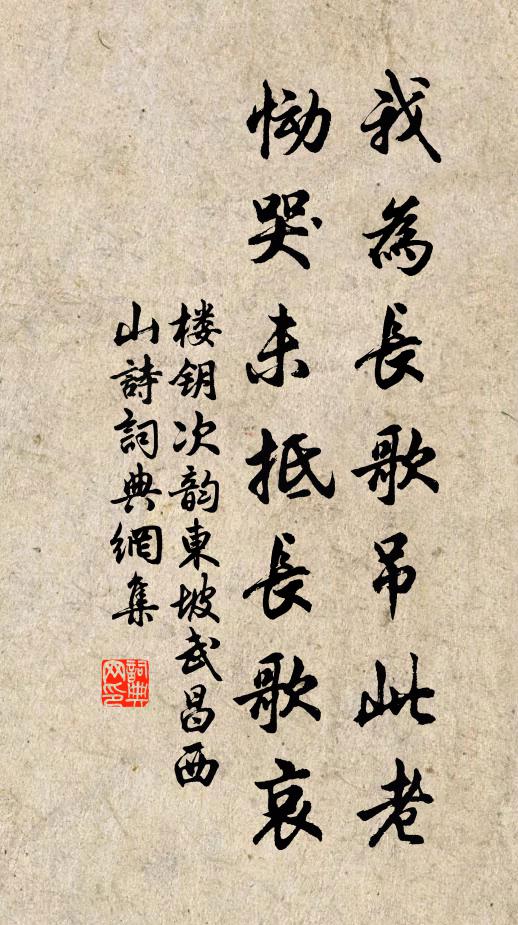 我為長歌吊此老
慟哭未抵長歌哀
楼钥次韵東坡武昌西
山詩詞典網集
詞典
网印